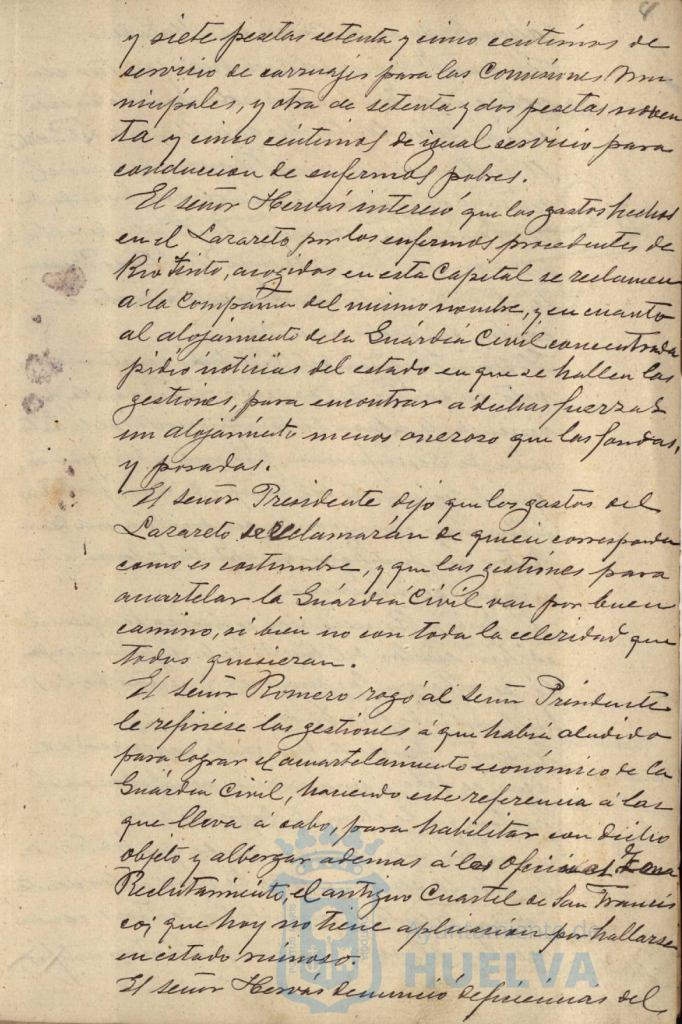 4
y siete pesetas setenta y cinco centimos de
servicio de carruajes para las Comisiones Mu-
nicipales, y otra de setenta y dos pesetas noven
ta y cinco centimos de igual servicio para
conduccion de enfermos pobres.
El señor Hervás interesó que los gastos hechos
en el Lazareto por los enfermos procedentes de
Rio Tinto, acogidos en esta Capital se reclamen
á la Compañia del mismo nombre, y en cuanto
al alojamiento de la Guardia Civil concentrada
pidió noticias del estado en que se hallen las
gestiones, para encontrar á dichas fuerzas
un alojamiento menos oneroso que las fondas,
y posadas.
El señor Presidente dijo que los gastos del
Lazareto se reclamarán de quien corresponda
como es costumbre, y que las gestiones para
acuartelar la Guardia Civil van por buen
camino, si bien no con toda la celeridad que
todos quisieran.
El señor Romero rogó al señor Presidente
le refiriese las gestiones á que habia aludido
para lograr el acuartelamiento económico de la
Guardia Civil, haciendo este referencia á las
que lleva á cabo, para habilitar con dicho
objeto y albergar ademas á las oficinas Zona
Reclutamiento, el antiguo Cuartel de San Francis
co, que hoy no tiene aplicacion por hallarse
en estado ruinoso.
El señor Hervás denunció deficiencias del
Ayuntamiento de
HUELVA